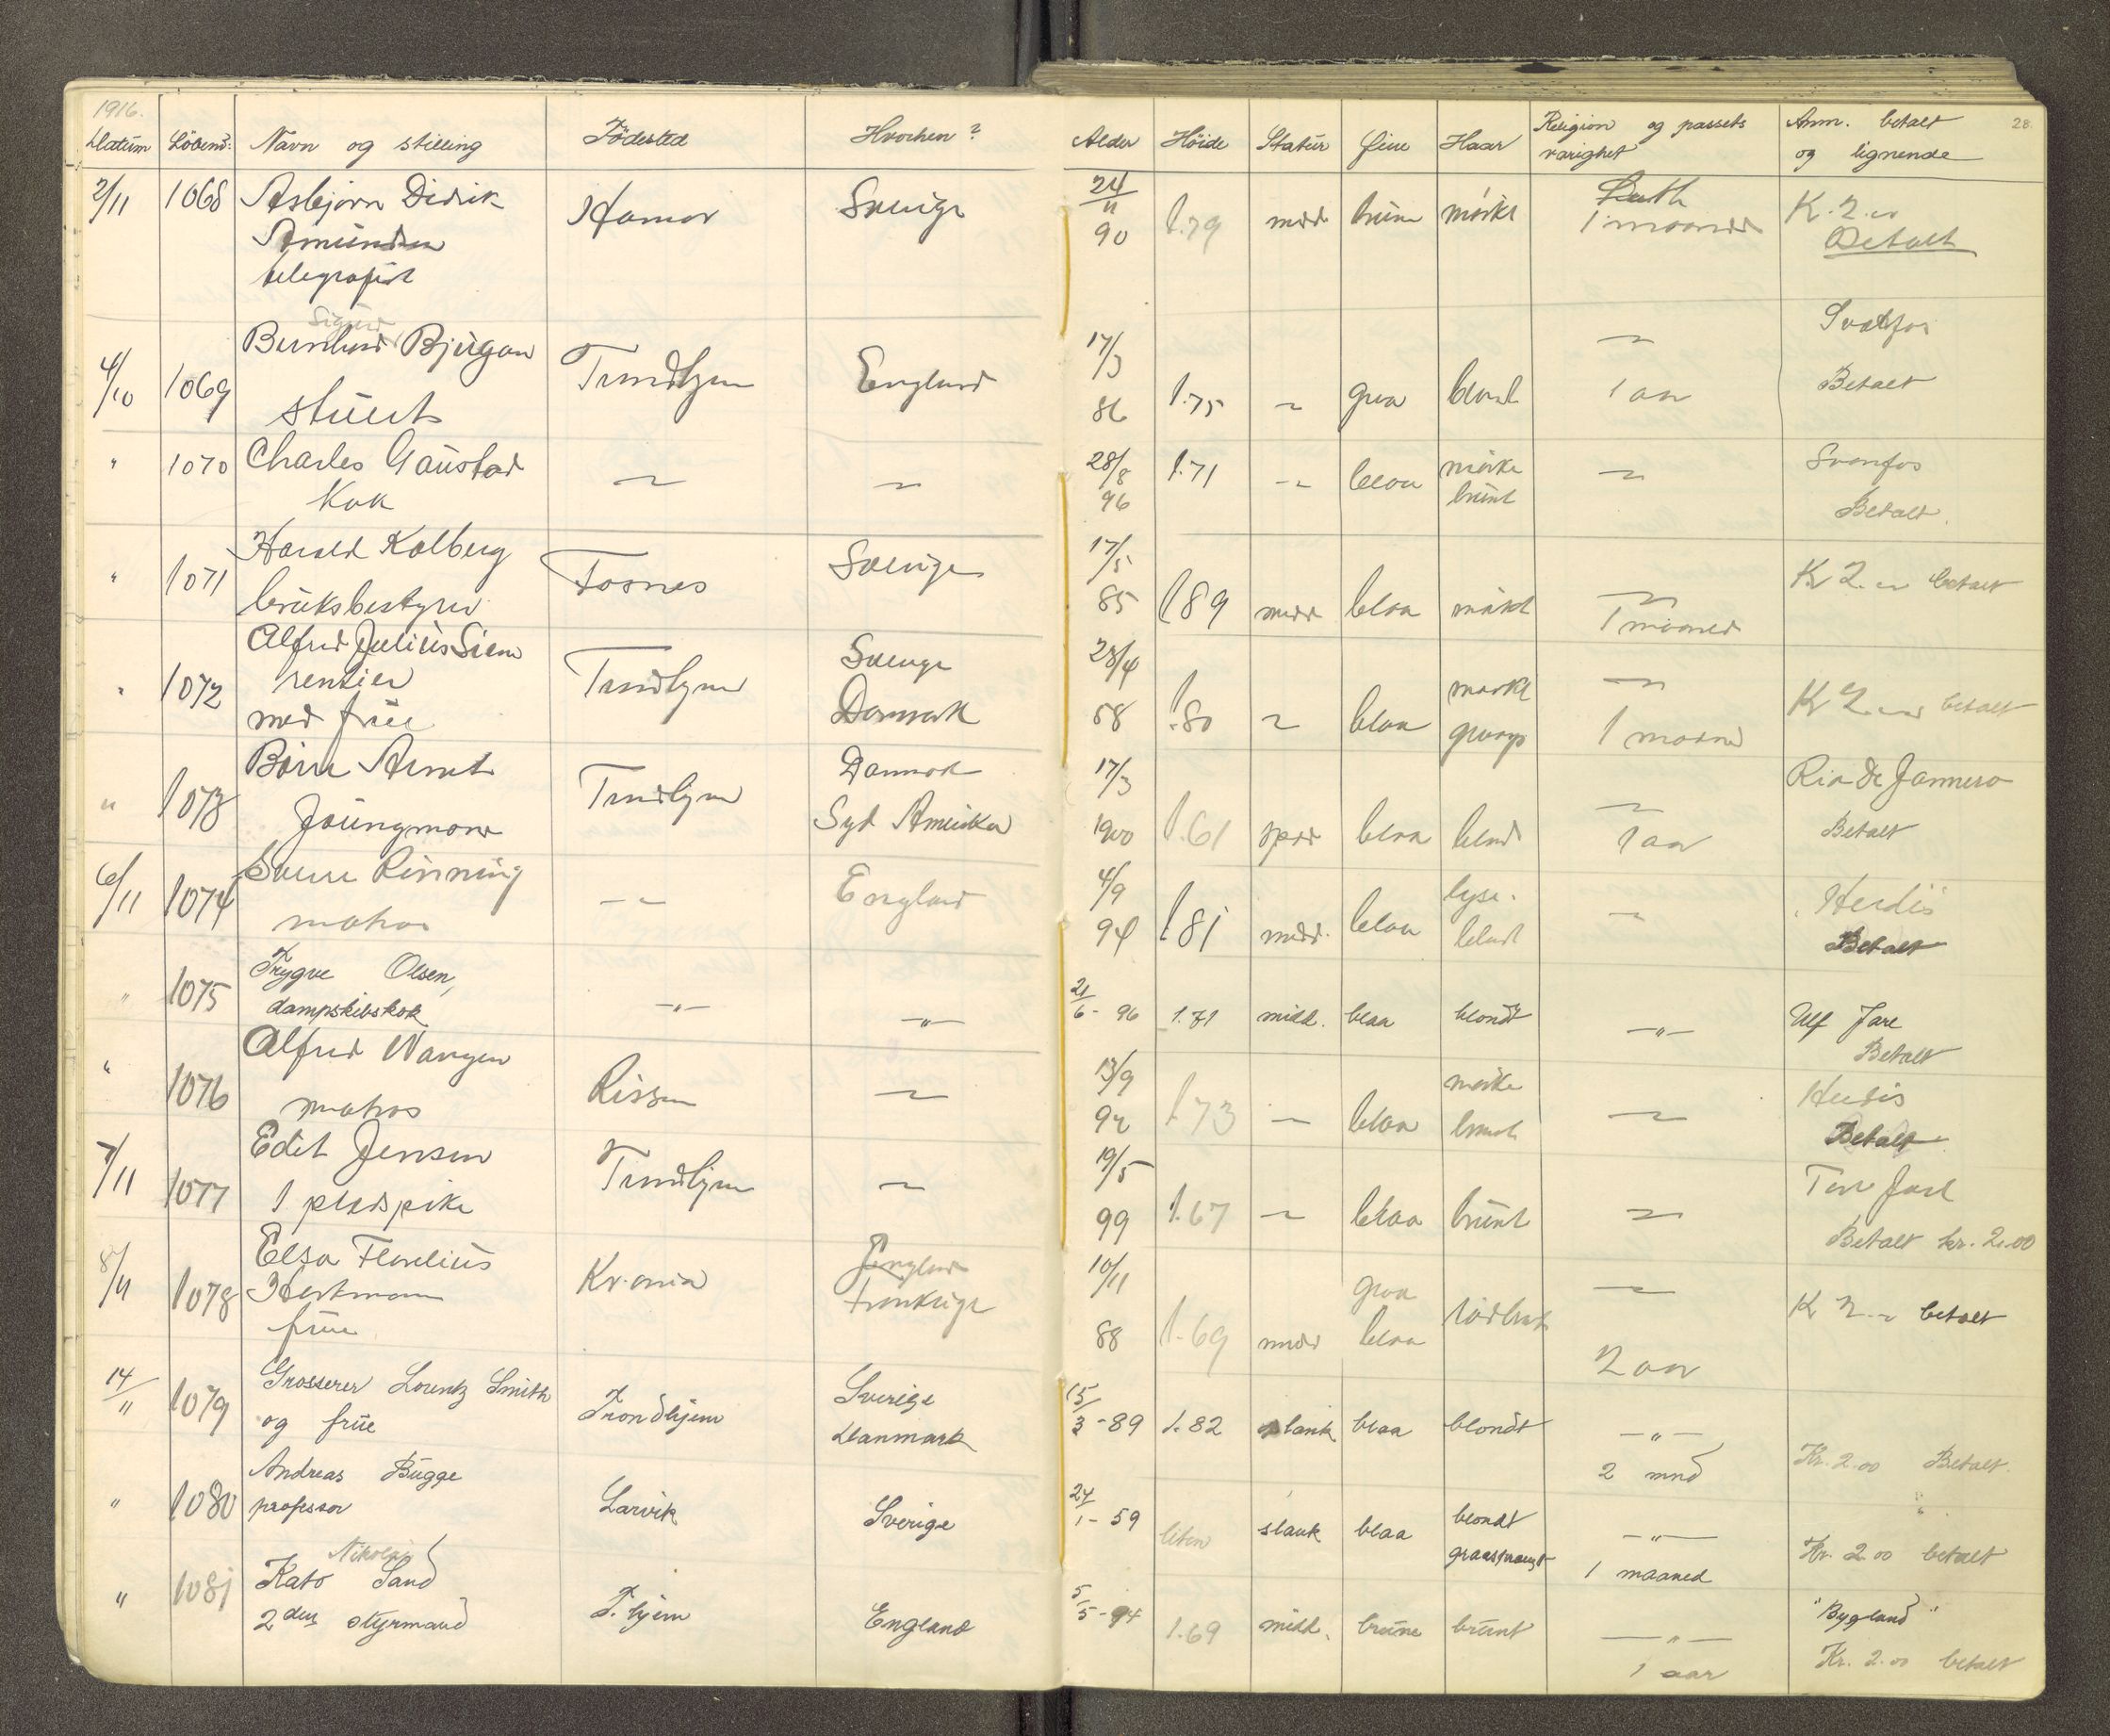 1916.
Datum Löbenº. Navn og stilling Födested Hvorhen? Alder Höide Statur Öine Haar Religion og passets varighet Anm. betalt og lignende 28.
2/11 1068 Asbjörn Didrik Hamar Sverige 24/11 90 1.79 midd brune mörkt Luth 1 maaned K. 2.00
Amundsen Betalt
telegrafist
Sigurd
4/10 1069 Bernhard Bjugan Trondhjem England 17/3 86 1.75 〃 graa blondt 〃 1 aar Svanfos
stuert Betalt
" 1070 Charles Gaustad 〃 〃 28/8 96 1.71 〃 blaa mörke brunt 〃 Svanfos
Kok Betalt
" 1071 Harald Kolberg Fosnes Sverige 17/5 85 1 89 midd blaa mörkt 〃 1 maaned Kr 2.00 betalt
bruksbestyrer
" 1072 Alfred Julius Siem Trondhjem Sverige 28/4 58 1.80 〃 blaa mörkt 〃 1 maaned Kr 2.00 betalt
rentier Danmark
med frue
" 1073 Börre Arnt Trondhjem Danmark 17/3 1900 1.61 spæd blaa blond 〃 1 aar Rio De Jannero
Joungmann Syd Amerika Betalt
6/11 1074 Sverre Rinning 〃 England 4/9 94 1 81 midd. blaa lyse- blondt 〃 Herdis
matros Betalt
" 1075 Trygve Olsen, — " — — " — 21/6 - 96 1.71 midd. blaa blondt — " — Ulf Jarl
dampskibskok Betalt
" 1076 Alfred Wangen Rissen 〃 13/9 92 1.73 〃 blaa mörke brunt 〃 Herdis
matros Betalt
7/11 1077 Edit Jensen Trondhjem 〃 19/5 99 1.67 〃 blaa brunt 〃 Tore Jarl
1 pladspike Betalt kr. 2.00
8/11 1078 Elsa Florelius Kr.ania England 10/11 88 1.69 midd graa blaa rödbrunt 〃 2 aar K 2.00 betalt
Hartmann Frankrige
frue
14/11 1079 Grosserer Lorentz Smith Trondhjem Sverige 15/3 - 89 1.82 slank blaa blondt — " — 2 mnd Kr. 2.00 Betalt.
og frue Danmark
" 1080 Andreas Bugge Larvik Sverige 24/1 - 59 liten slank blaa blondt graasprængt — " — 1 maaned Kr. 2.00 betalt
professor
Nikolai
" 1081 Kato Sand T.hjem England 5/5 - 94 1.69 midd. brune brunt — " — 1 aar "Bygland"
2den styrmand Kr. 2.00 betalt